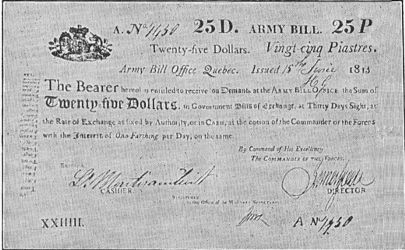 A. No. 4950 25 D. ARMY BILL. 25 P
Twenty-five Dollars. Vingt-cinq Piastres.
Army Bill Office Quebec. Issued 1813
The Bearer hereof is entitled to receive on Demand at the ARMY BILL OFFICE the Sum of
Twenty-five Dollars, in Government Bills of Exchange, at Thirty Days Sight, at
the Rate of Exchange fixed by Authority, or in CASH, at the option of the Commander of the Forces
with the Interest of One Farthing per Day, on the same.
By Command of His Excellency
The COMMANDER OF THE FORCES.
CASHIER
DIRECTOR
of the Military Secretary
XXIIIII. A No. 4950